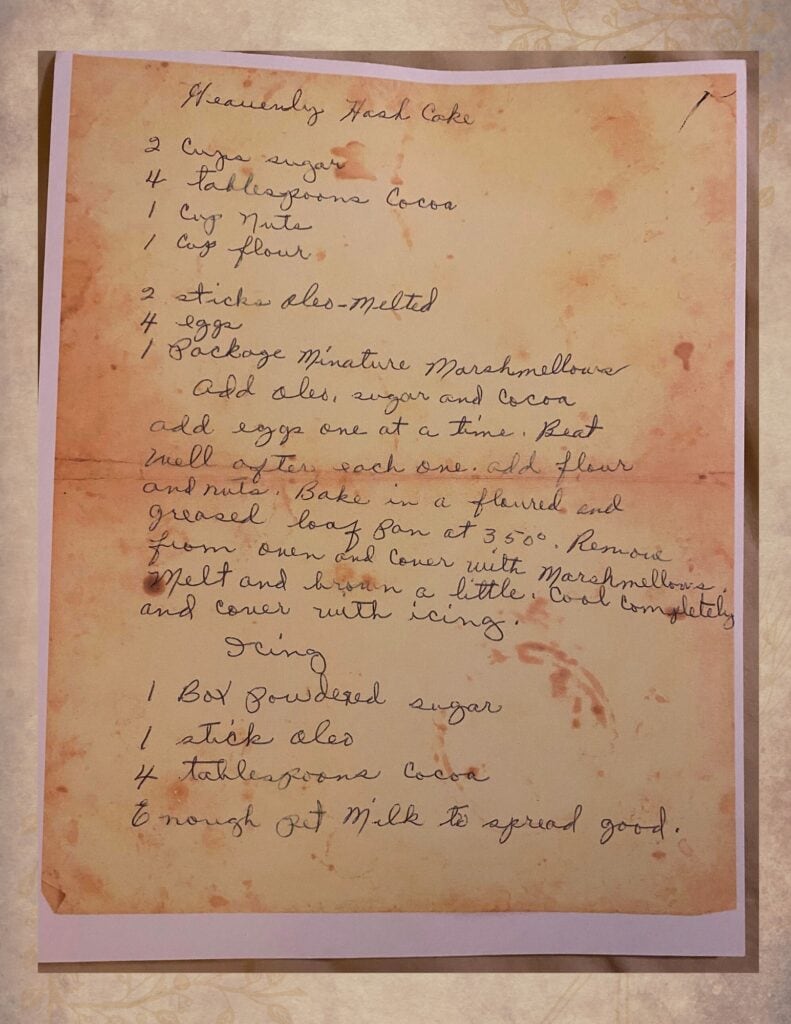 Heavenly Hash Cake
2 Cups sugar
4 tablespoons Cocoa
1 Cup Nuts
1 Cup flour
2 sticks oleo-Melted
4 eggs
1 Package Minature Marshmellows
Add oleo, sugar and Cocoa
add eggs one at a time. Beat
well after each one. add flour
and nuts. Bake in a floured and
greased loaf pan at 350°. Remove
from oven and cover with Marshmellows.
Melt and brown a little. Cool completely
and cover with icing.
Icing
1 Box powdered sugar
1 stick oleo
4 tablespoons Cocoa
Enough pet Milk to spread good.